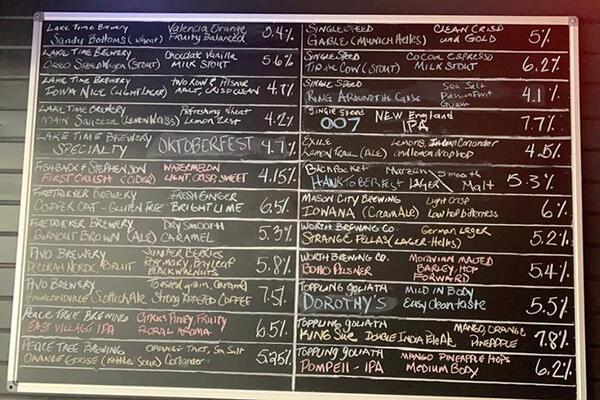 LAKE TIME BREWERY Valencia Orange 5.4%
Sandy Bottoms (wheat) Fruity Balanced
LAKE TIME BREWERY Chocolate Vanilla 5.6%
OREO SPEEDWAGON (STOUT) MILK STOUT
LAKE TIME BREWERY TWO ROW & PILSNER 4.7%
IOWA NICE (LIGHT LAGER) MALT, CRISP CLEAN
LAKE TIME BREWERY Refreshing wheat 4.2%
MAIN SQUEEZE (LEMON WEISS) Lemon Zest
LAKE TIME BREWERY OKTOBERFEST 4.7%
SPECIALTY
FISHBACK & STEPHENSON WATERMELON 4.15%
FIRST CRUSH (CIDER) LIGHT CRISP SWEET
FIRETRUCKER BREWERY FRESH GINGER 6.5%
COPPER CAT - GLUTEN FREE BRIGHT LIME
FIRETRUCKER BREWERY DRY SMOOTH 5.3%
BURNOUT BROWN (ALE) CARAMEL
PIVO BREWERY JUNIPER BERRIES 5.8%
DECORAH NORDIC ROSEMARY, Bay leaf
BLACK WALNUTS
PIVO BREWERY Toasted grain, Caramel 7.5%
Scottish Ale STRONG ROASTED COFFEE
PEACE TREE BREWING CITRUS PINEY FRUITY 6.5%
EAST VILLAGE IPA FLORAL AROMA
PEACE TREE BREWING ORANGE TART, Sea Salt 5.25%
ORANGE GOSE (Kettle Sour) Coriander
SINGLE SPEED CLEAN CRISP 5%
GABLE (MUNICH HELLES) and GOLD
SINGLE SPEED COCOA ESPRESSO 6.2%
TIP THE COW (STOUT) MILK STOUT
SINGLE SPEED Sea Salt 4.1%
RING AROUND THE GOSE PASSIONFRUIT
Guava
SINGLE SPEED NEW ENGLAND 7.7%
007 IPA
EXILE Lemons, Indian Coriander 4.5%
LEMON TRAIL (ALE) and lemon drop hop
BACKPOCKET Marzen Smooth 5.3%
HANKTOBERFEST LAGER Malt
MASON CITY BREWING Light Crisp 6%
IOWANA (Cream Ale) Low hop bitterness
WORTH BREWING CO. German Lager 5.2%
STRANGE FELLAS (LAGER-Helles)
WORTH BREWING CO. MORAVIAN MALTED 5.4%
BOHO PILSNER BARLEY, HOP
FORWARD
TOPPLING GOLIATH MILD IN BODY 5.5%
DOROTHY'S Easy clean taste
TOPPLING GOLIATH MANGO, ORANGE 7.8%
KING SUE DOUBLE INDIA Pale Ale PINEAPPLE
TOPPLING GOLIATH MANGO PINEAPPLE HOPS 6.2%
POMPEII - IPA MEDIUM BODY